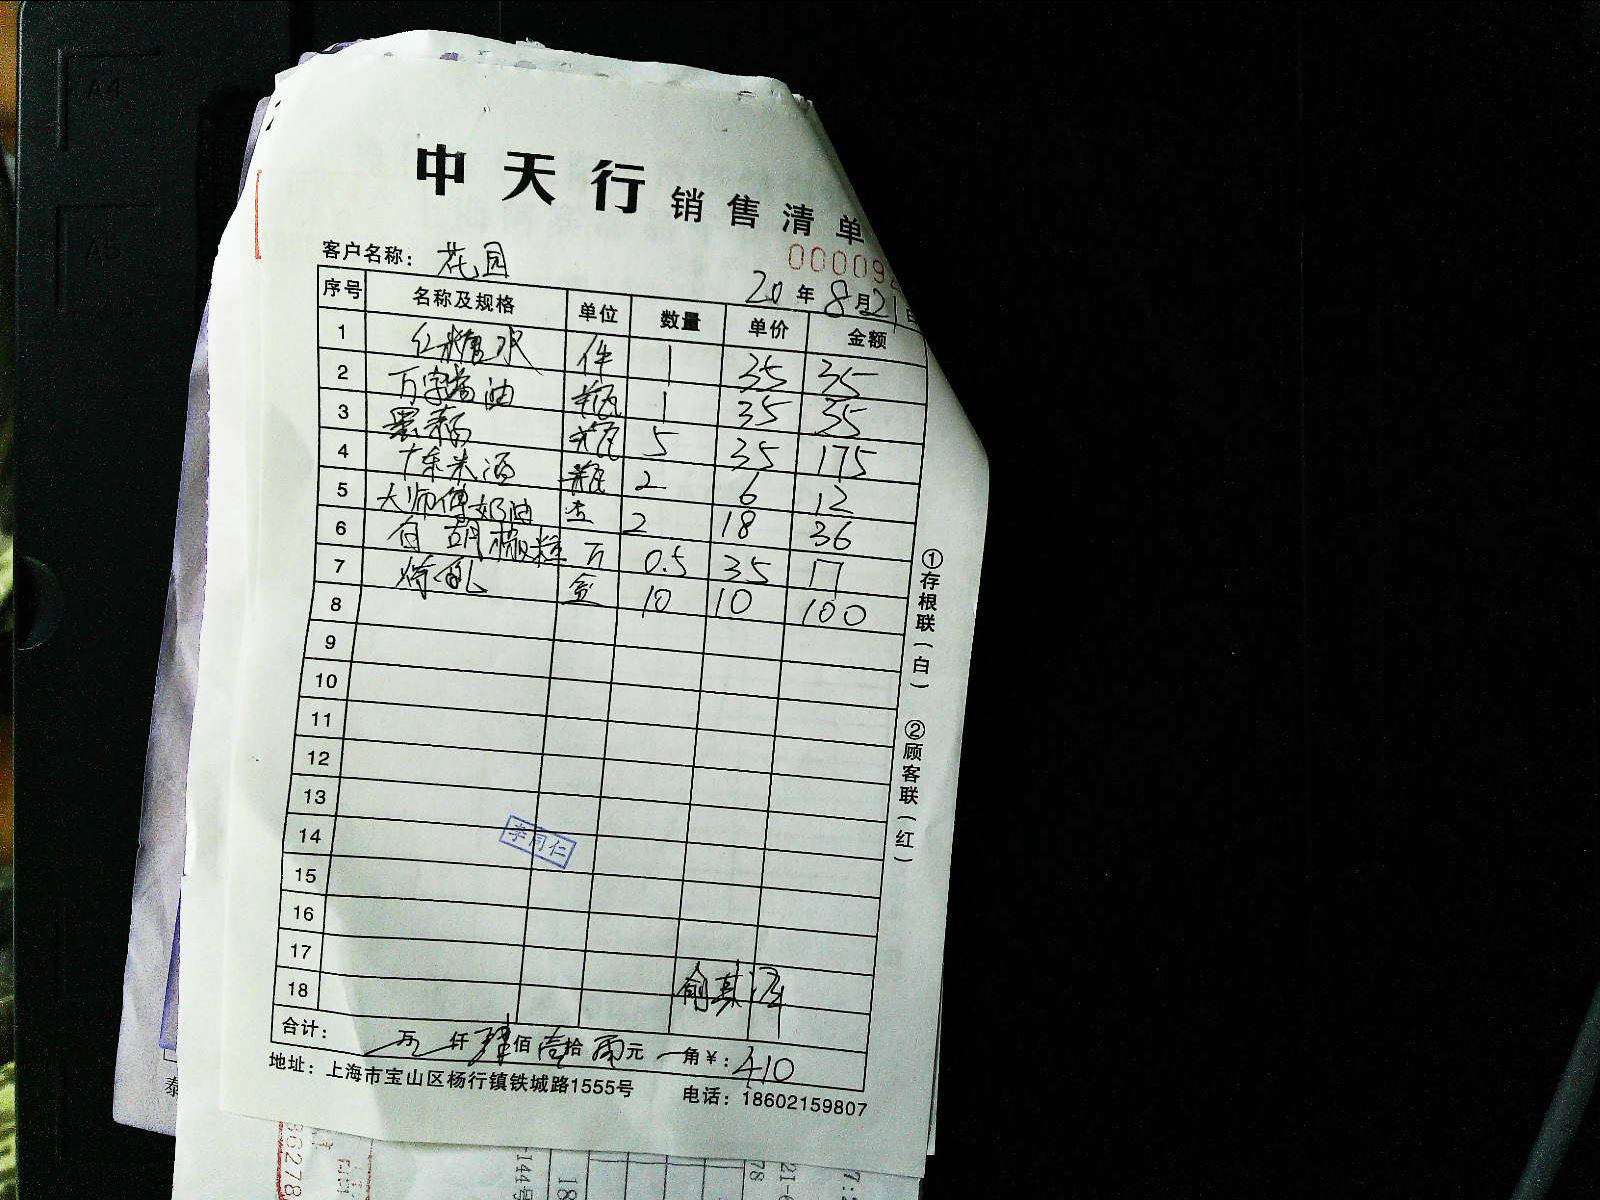 A4
A5
中天行 销售清单
00009
客户名称： 花园
20年8月21日
序号 名称及规格 单位 数量 单价 金额
1 红糖水 件 1 35 35
2 万字酱油 瓶 1 35 35
3 瓶 5 35 175
4 米酒 瓶 2 6 12
5 大师傅奶油 2 18 36
6 白胡椒粒 0.5 35 17
7 炼乳 盒 10 10 100
8
9
10
11
12
13
14
李同仁
15
16
17
18
合计： 万 仟 肆佰 壹拾 元 角 ¥：410
地址：上海市宝山区杨行镇铁城路1555号 电话：18602159807
①存根联（白） ②顾客联（红）